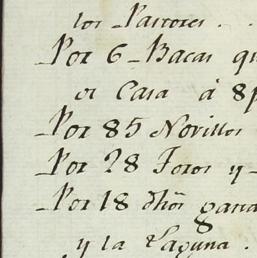 los Pastores . .
Por 6 Bacas qu
en Casa á 8p
Por 85 Novillos
Por 28 Toros y
Por 18 dhõs gana
y la Laguna .